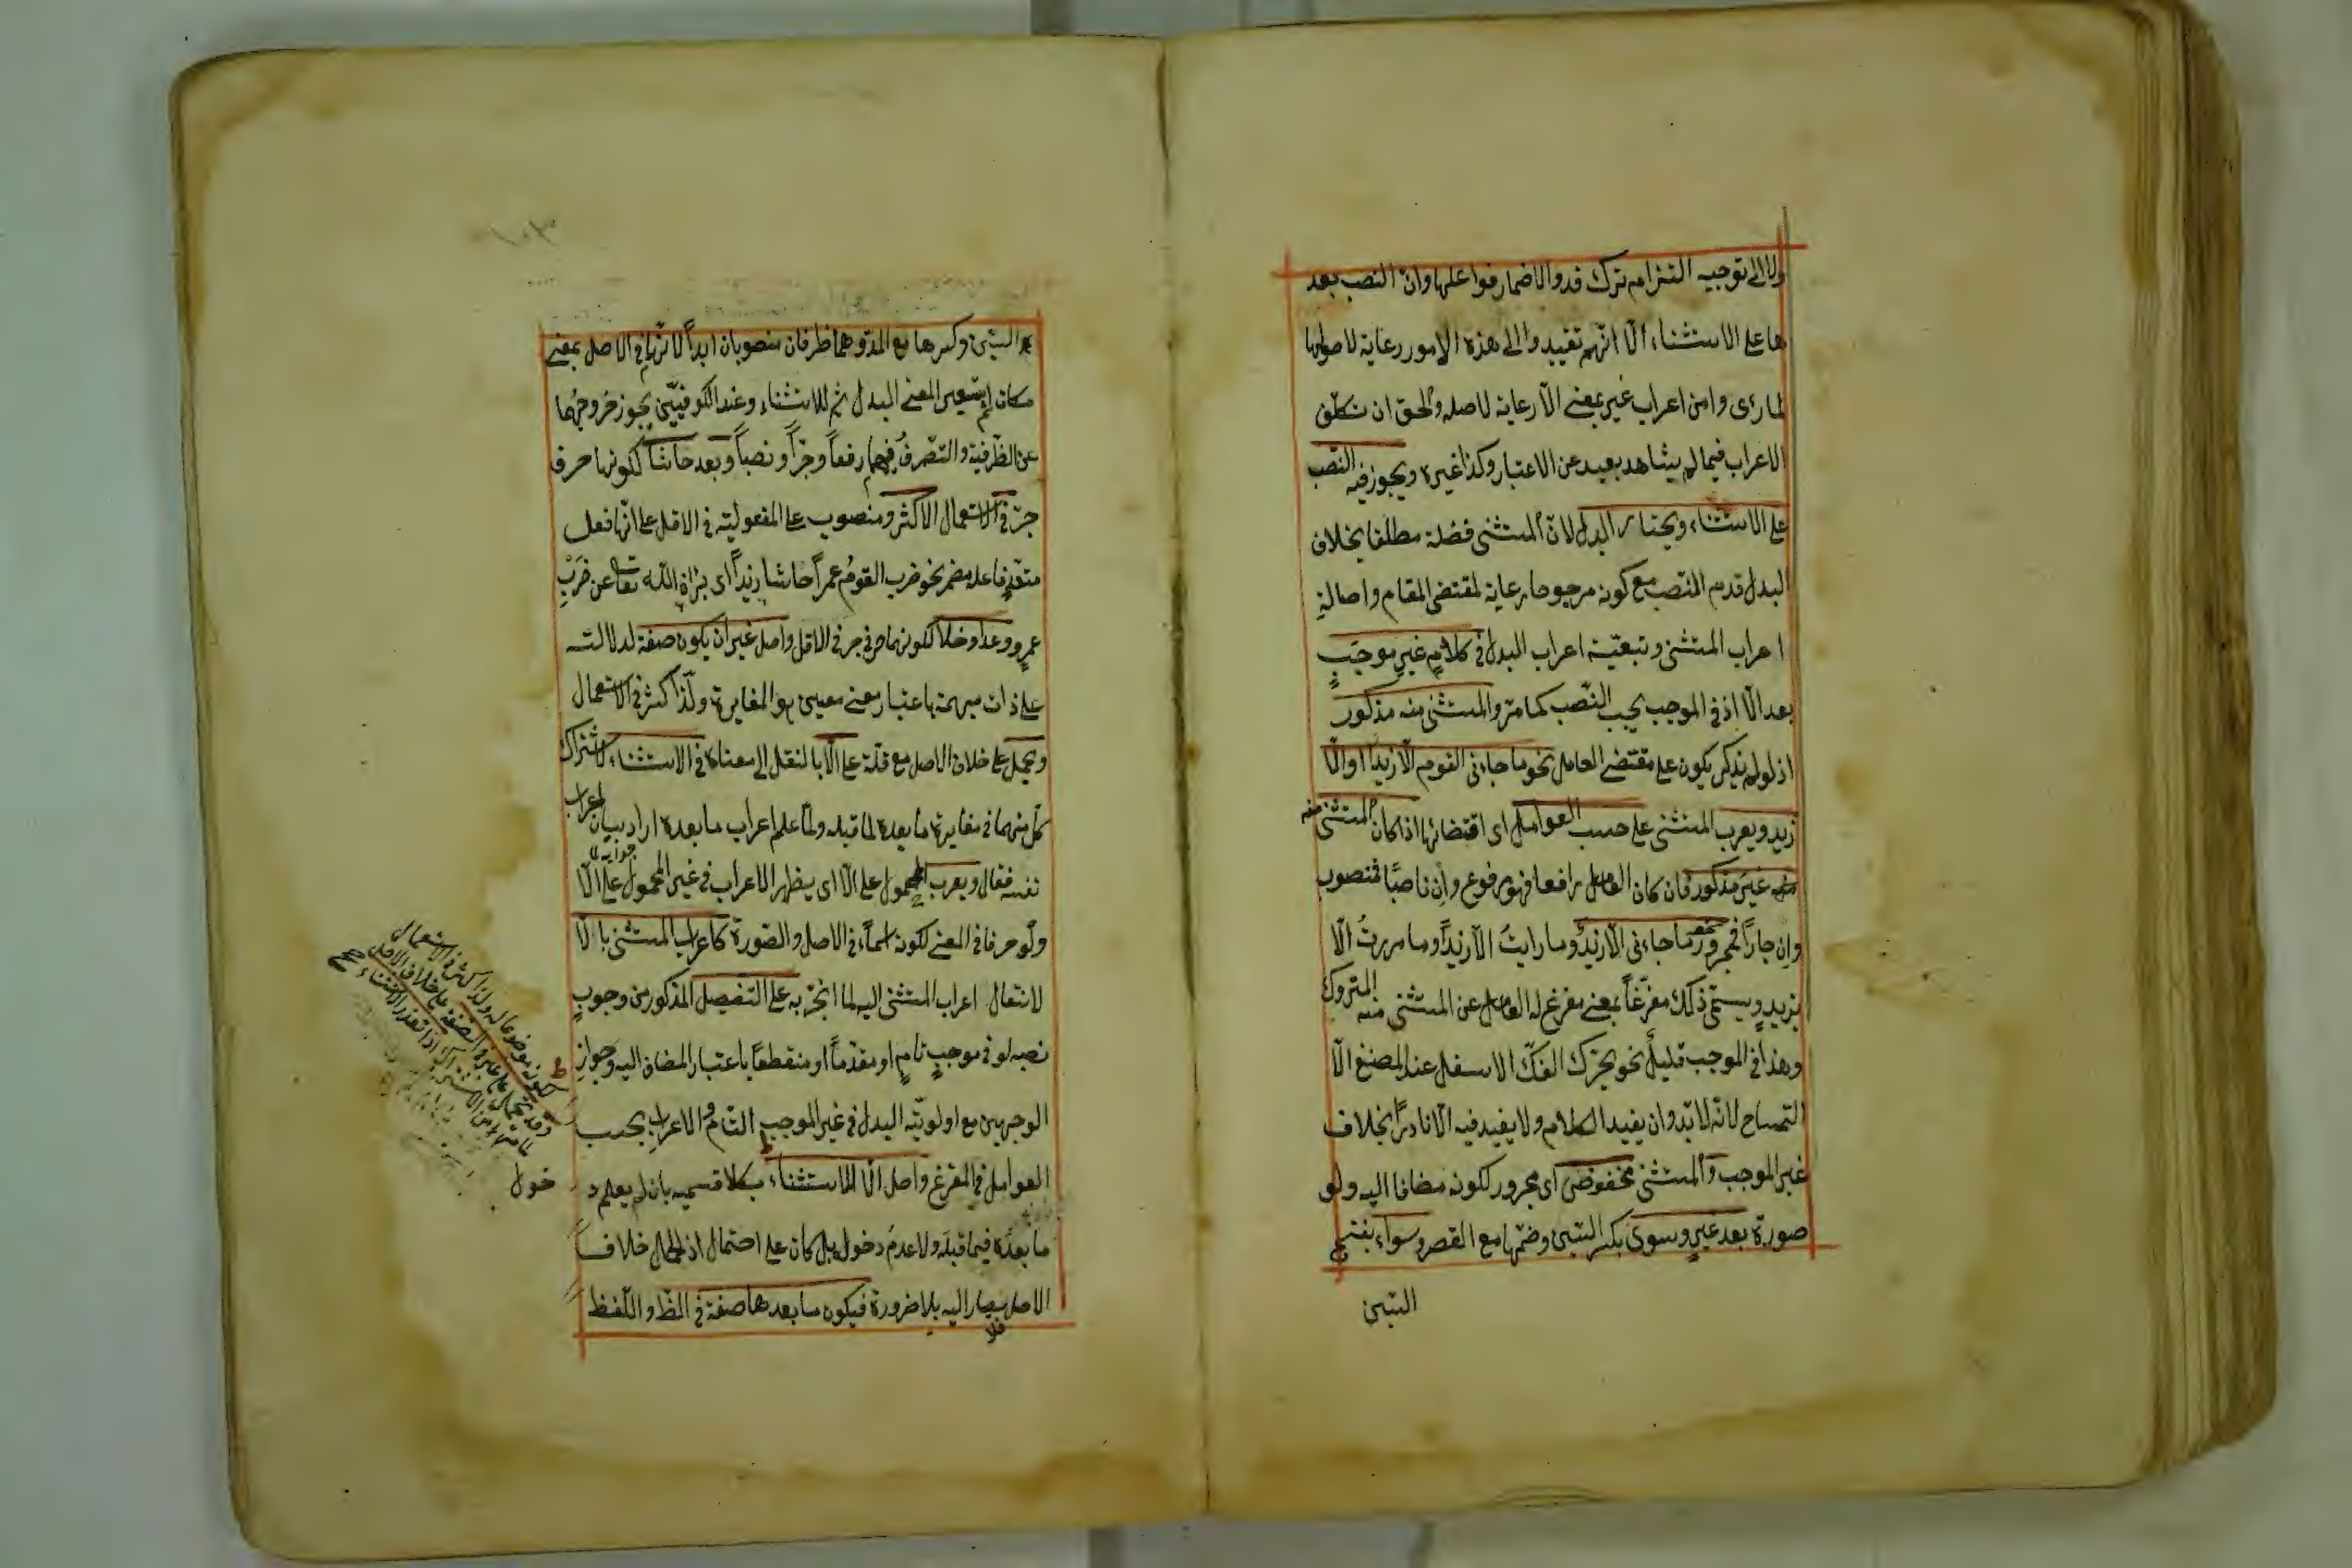 ولا الى توجيه التزام ترك قد والاضمار فواعلها وان النصب بعد
ها على الاستثناء الا انهم تقيدوا الى هذه الامور رعاية لاصولها
لما رؤى وامن اعراب غير بمعنى الا رعاية لاصله والحق ان تكلف
الاعراب فيما لم يشاهد بعيد عن الاعتبار وكذا غيره ويجوز فيه النصب
على الاستثناء ويختار البدل لان المستثنى فضلة مطلقا بخلاف
البدل قدم النصب مع كونه مرجوحا رعاية لمقتضى المقام واصالة
اعراب المستثنى وتبعية اعراب البدل في كلام غير موجب
بعد الا اذ في الموجب يجب النصب كما مر والمستثنى منه مذكور
اذ لو لم يذكر يكون على مقتضى العامل نحو ما جاءنى القوم الا زيدا او الا
زيد ويعرب المستثنى على حسب العوامل اى اقتضائها اذا كان المستثنى منه
غير مذكور فان كان العامل رافعا فهو مرفوع وان ناصبا فمنصوب
وان جارا فمجرور نحو ما جاءنى الا زيد وما رايت الا زيدا وما مررت الا
بزيد ويسمى ذلك مفرغا بمعنى مفرغ له العامل عن المستثنى منه المتروك
وهذا في الموجب قليل نحو يحرك الفك الاسفل عند المضغ الا
التمساح لانه لا بد وان يفيد الكلام ولا يفيد فيه الا نادرا بخلاف
غير الموجب والمستثنى مخفوض اى مجرور لكونه مضافا اليه ولو
صورة بعد غير وسوى بكسر السين وضمها مع القصر وسواء بفتح
السين
السين وكسرها مع المد وهما ظرفان منصوبان ابدا لانهما في الاصل بمعنى
مكان ثم استعير لمعنى البدل ثم للاستثناء وعند الكوفيين يجوز خروجهما
عن الظرفية والتصرف فيهما رفعا وجرا ونصبا وبعد حاشا لكونها حرف
جر في الاستعمال الاكثر ومنصوب على المفعولية في الاقل على انها فعل
متعد فاعله مضمر نحو ضرب القوم عمرا حاشا زيدا اى براه الله تعالى عن ضرب
عمرو وعدا وخلا لكونهما حرفي جر في الاقل واصل غير ان يكون صفة لدلالته
على ذات مبهمة باعتبار معنى معين هو المغايرة ولذا كثر في الاستعمال
ويحمل على خلاف الاصل مع قلة على الا بالنقل الى معناه في الاستثناء لاشتراك
كل منهما في مغايرة ما بعده لما قبله ولما علم اعراب ما بعده اراد بيان اعراب
نفسه فقال ويعرب المحمول على الا اى يظهر الاعراب في غير المحمول على الا
ولو حرفا في المعنى لكونه اسما في الاصل والصورة كاعراب المستثنى بالا
لانتقال اعراب المستثنى اليه لما انجر به على التفصيل المذكور من وجوب
نصبه لو في موجب تام او مقدما او منقطعا باعتبار المضاف اليه وجواز
الوجهين مع اولوية البدل في غير الموجب التام والاعراب بحسب
العوامل في المفرغ واصل الا للاستثناء بكلا قسميه بان لم يعلم د
خول
ما بعده فيما قبله ولا عدم دخوله بل كان على احتمال اذ الحال خلاف
الاصل يصار اليه بلا ضرورة فيكون ما بعدها صفة في الظ واللفظ
فلا